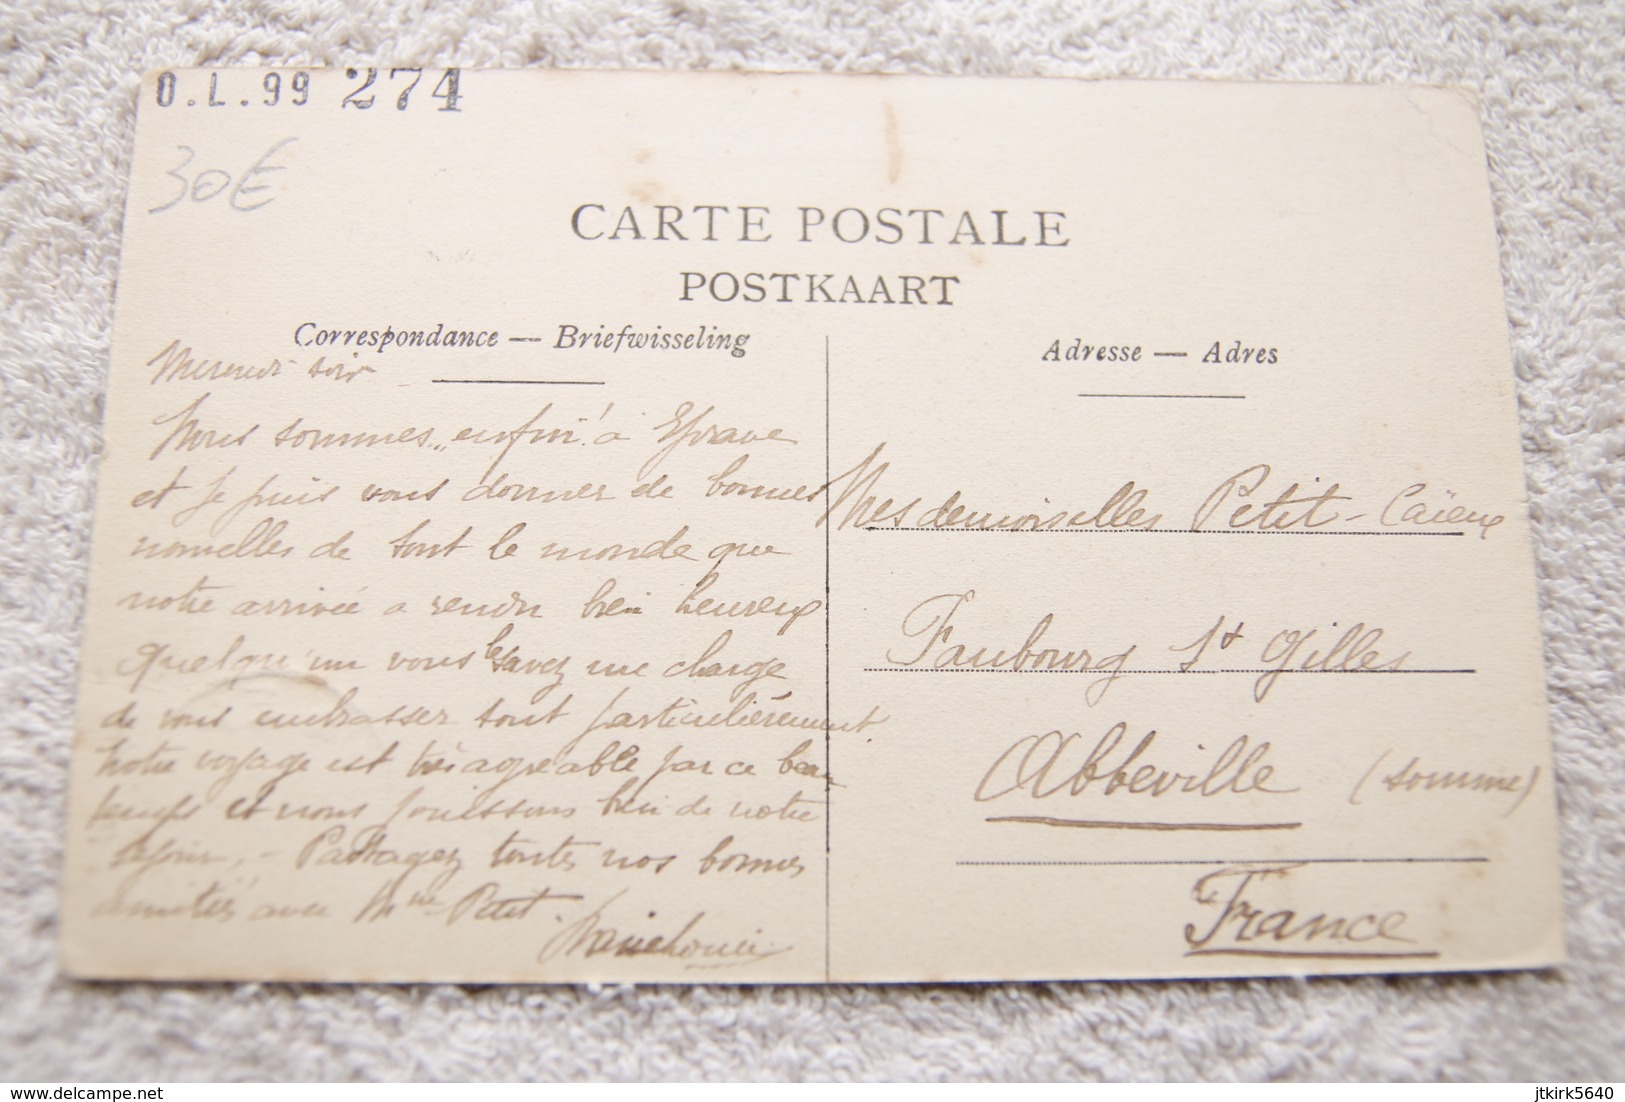 O.L.99 274
30€
CARTE POSTALE
POSTKAART
Correspondance — Briefwisseling
Adresse — Adres
soir
Nous sommes... enfin! à Eprave
et je puis vous donner de bonnes
nouvelles de tout le monde que
notre arrivée a rendu bien heureux
quelqu'un vous le savez me charge
de vous embrasser tout particulièrement.
Notre voyage est très agréable par ce beau
temps et nous jouissons bien de notre
séjour. - Partagez toutes nos bonnes
amitiés avec Mme Petit.
Mesdemoiselles Petit-Caïeux
Faubourg St Gilles
Abbeville (Somme)
France
https://www.delcampe.net
jtkirk5640